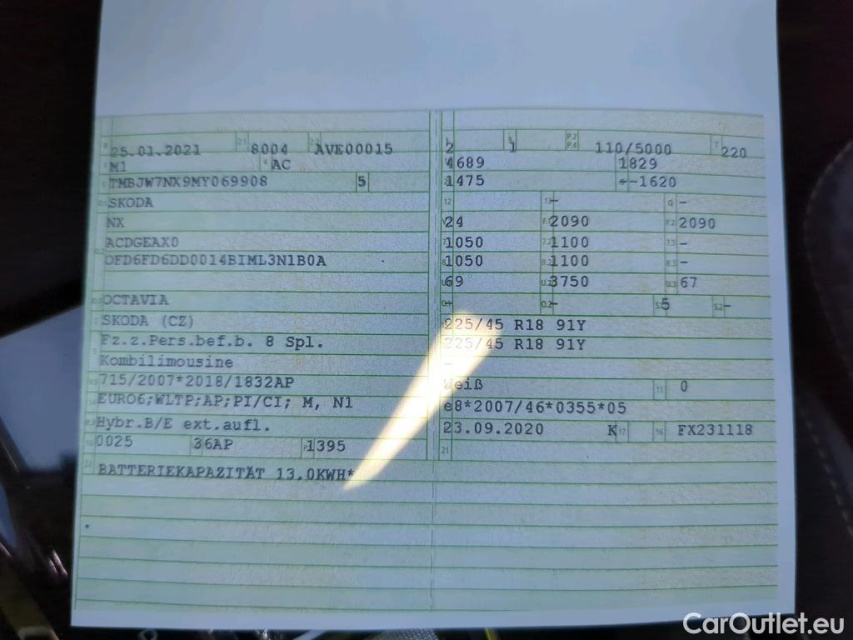 25.01.2021 8004 AVE00015
M1 AC
TMBJW7NX9MY069908 5
SKODA
NX
ACDGEAX0
DFD6FD6DD0014BIML3N1B0A
OCTAVIA
SKODA (CZ)
Fz.z.Pers.bef.b. 8 Spl.
Kombilimousine
715/2007*2018/1832AP
EURO6;WLTP;AP;PI/CI; M, N1
Hybr.B/E ext.aufl.
0025 36AP 1395
BATTERIEKAPAZITÄT 13,0KWH*
2 1 110/5000 220
4689 1829
1475 --1620
- -
24 2090 2090
1050 1100 -
1050 1100 -
69 3750 67
- - 5 -
225/45 R18 91Y
225/45 R18 91Y
Weiß 0
e8*2007/46*0355*05
23.09.2020 K FX231118
CarOutlet.eu